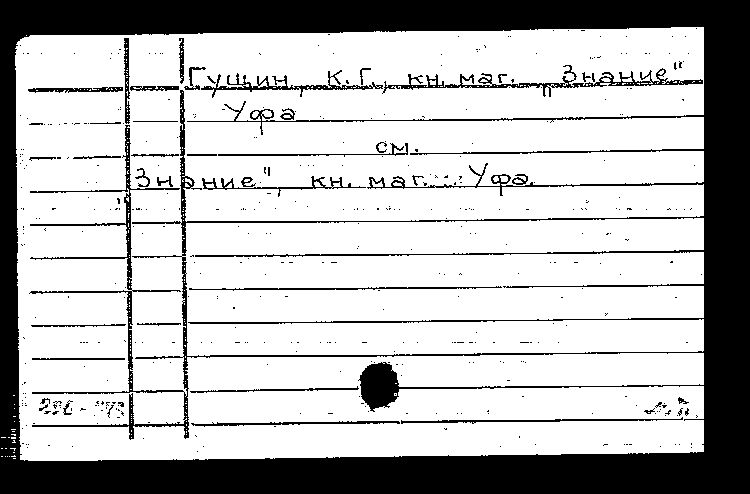 Гущин, К. Г., кн. маг. „Знание"
Уфа
см.
„Знание", кн. маг. Уфа.